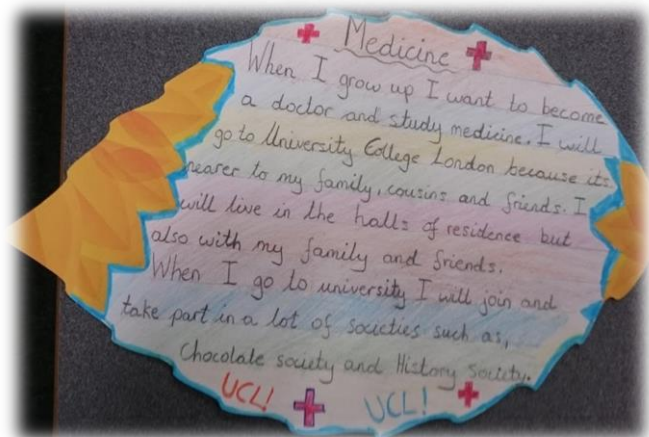 Medicine
When I grow up I want to become
a doctor and study medicine. I will
go to University College London because its
nearer to my family, cousins and friends. I
will live in the halls of residence but
also with my family and friends.
When I go to university I will join and
take part in a lot of societies such as,
Chocolate society and History society.
UCL! UCL!